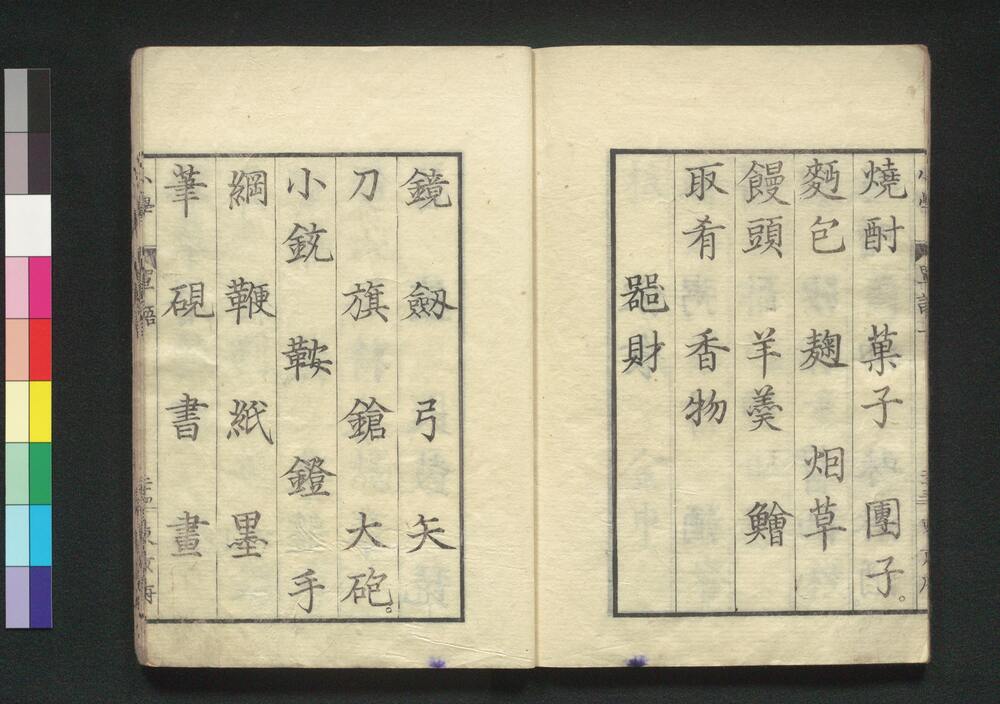 燒酎 菓子 團子。
麪包 麹 烟草
饅頭 羊羹 鱠
取肴 香物
噐財
鏡 劔 弓 矢
刀 旗 鎗 大砲。
小銃 鞍 鐙 手
綱 鞭 紙 墨
筆 硯 書 畫